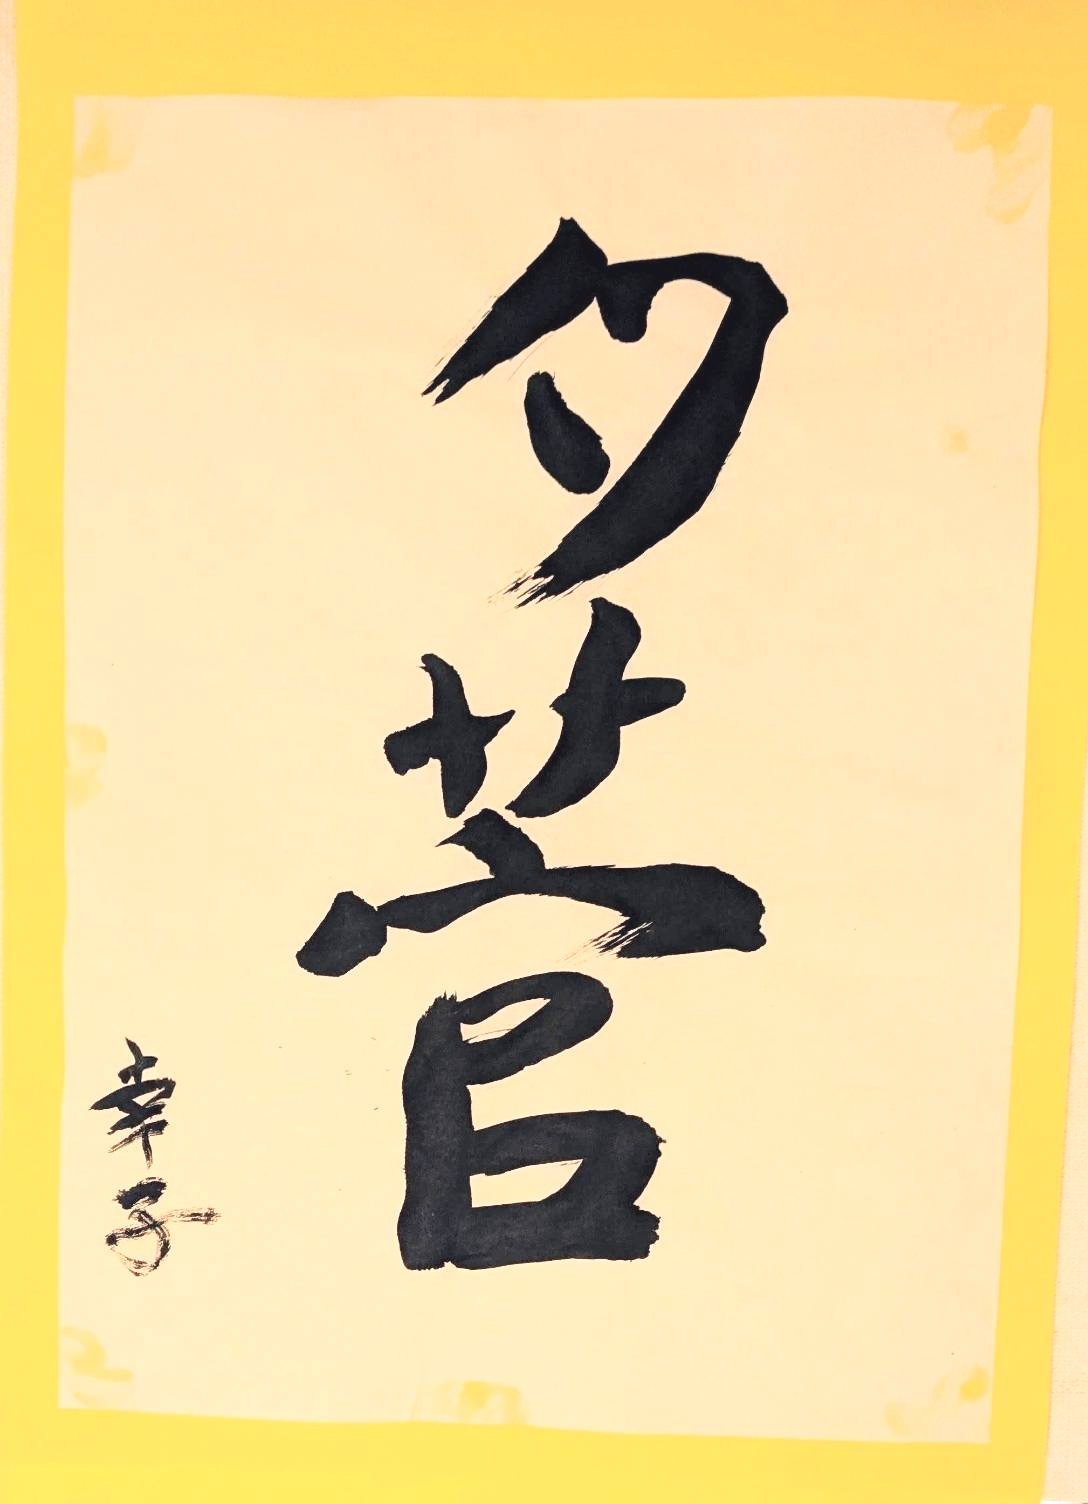 夕菅
幸子